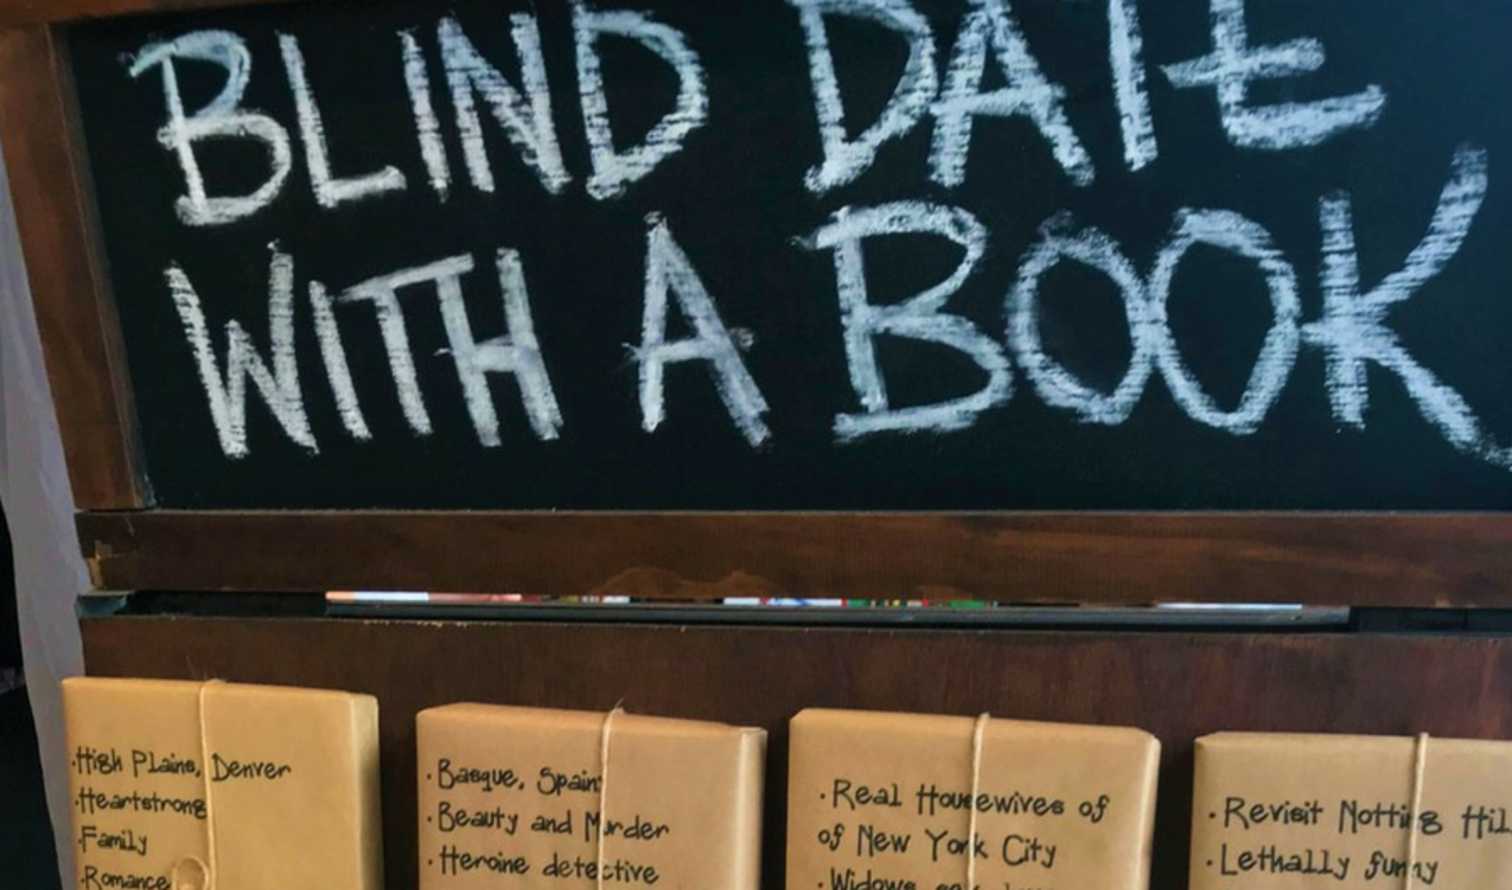 BLIND DATE
WITH A BOOK
·High Plains, Denver
·Heartstrong
·Family
·Romance
·Basque, Spain
·Beauty and Murder
·Heroine detective
·Real Housewives of
of New York City
·Widows
·Revisit Notting Hil
·Lethally funny